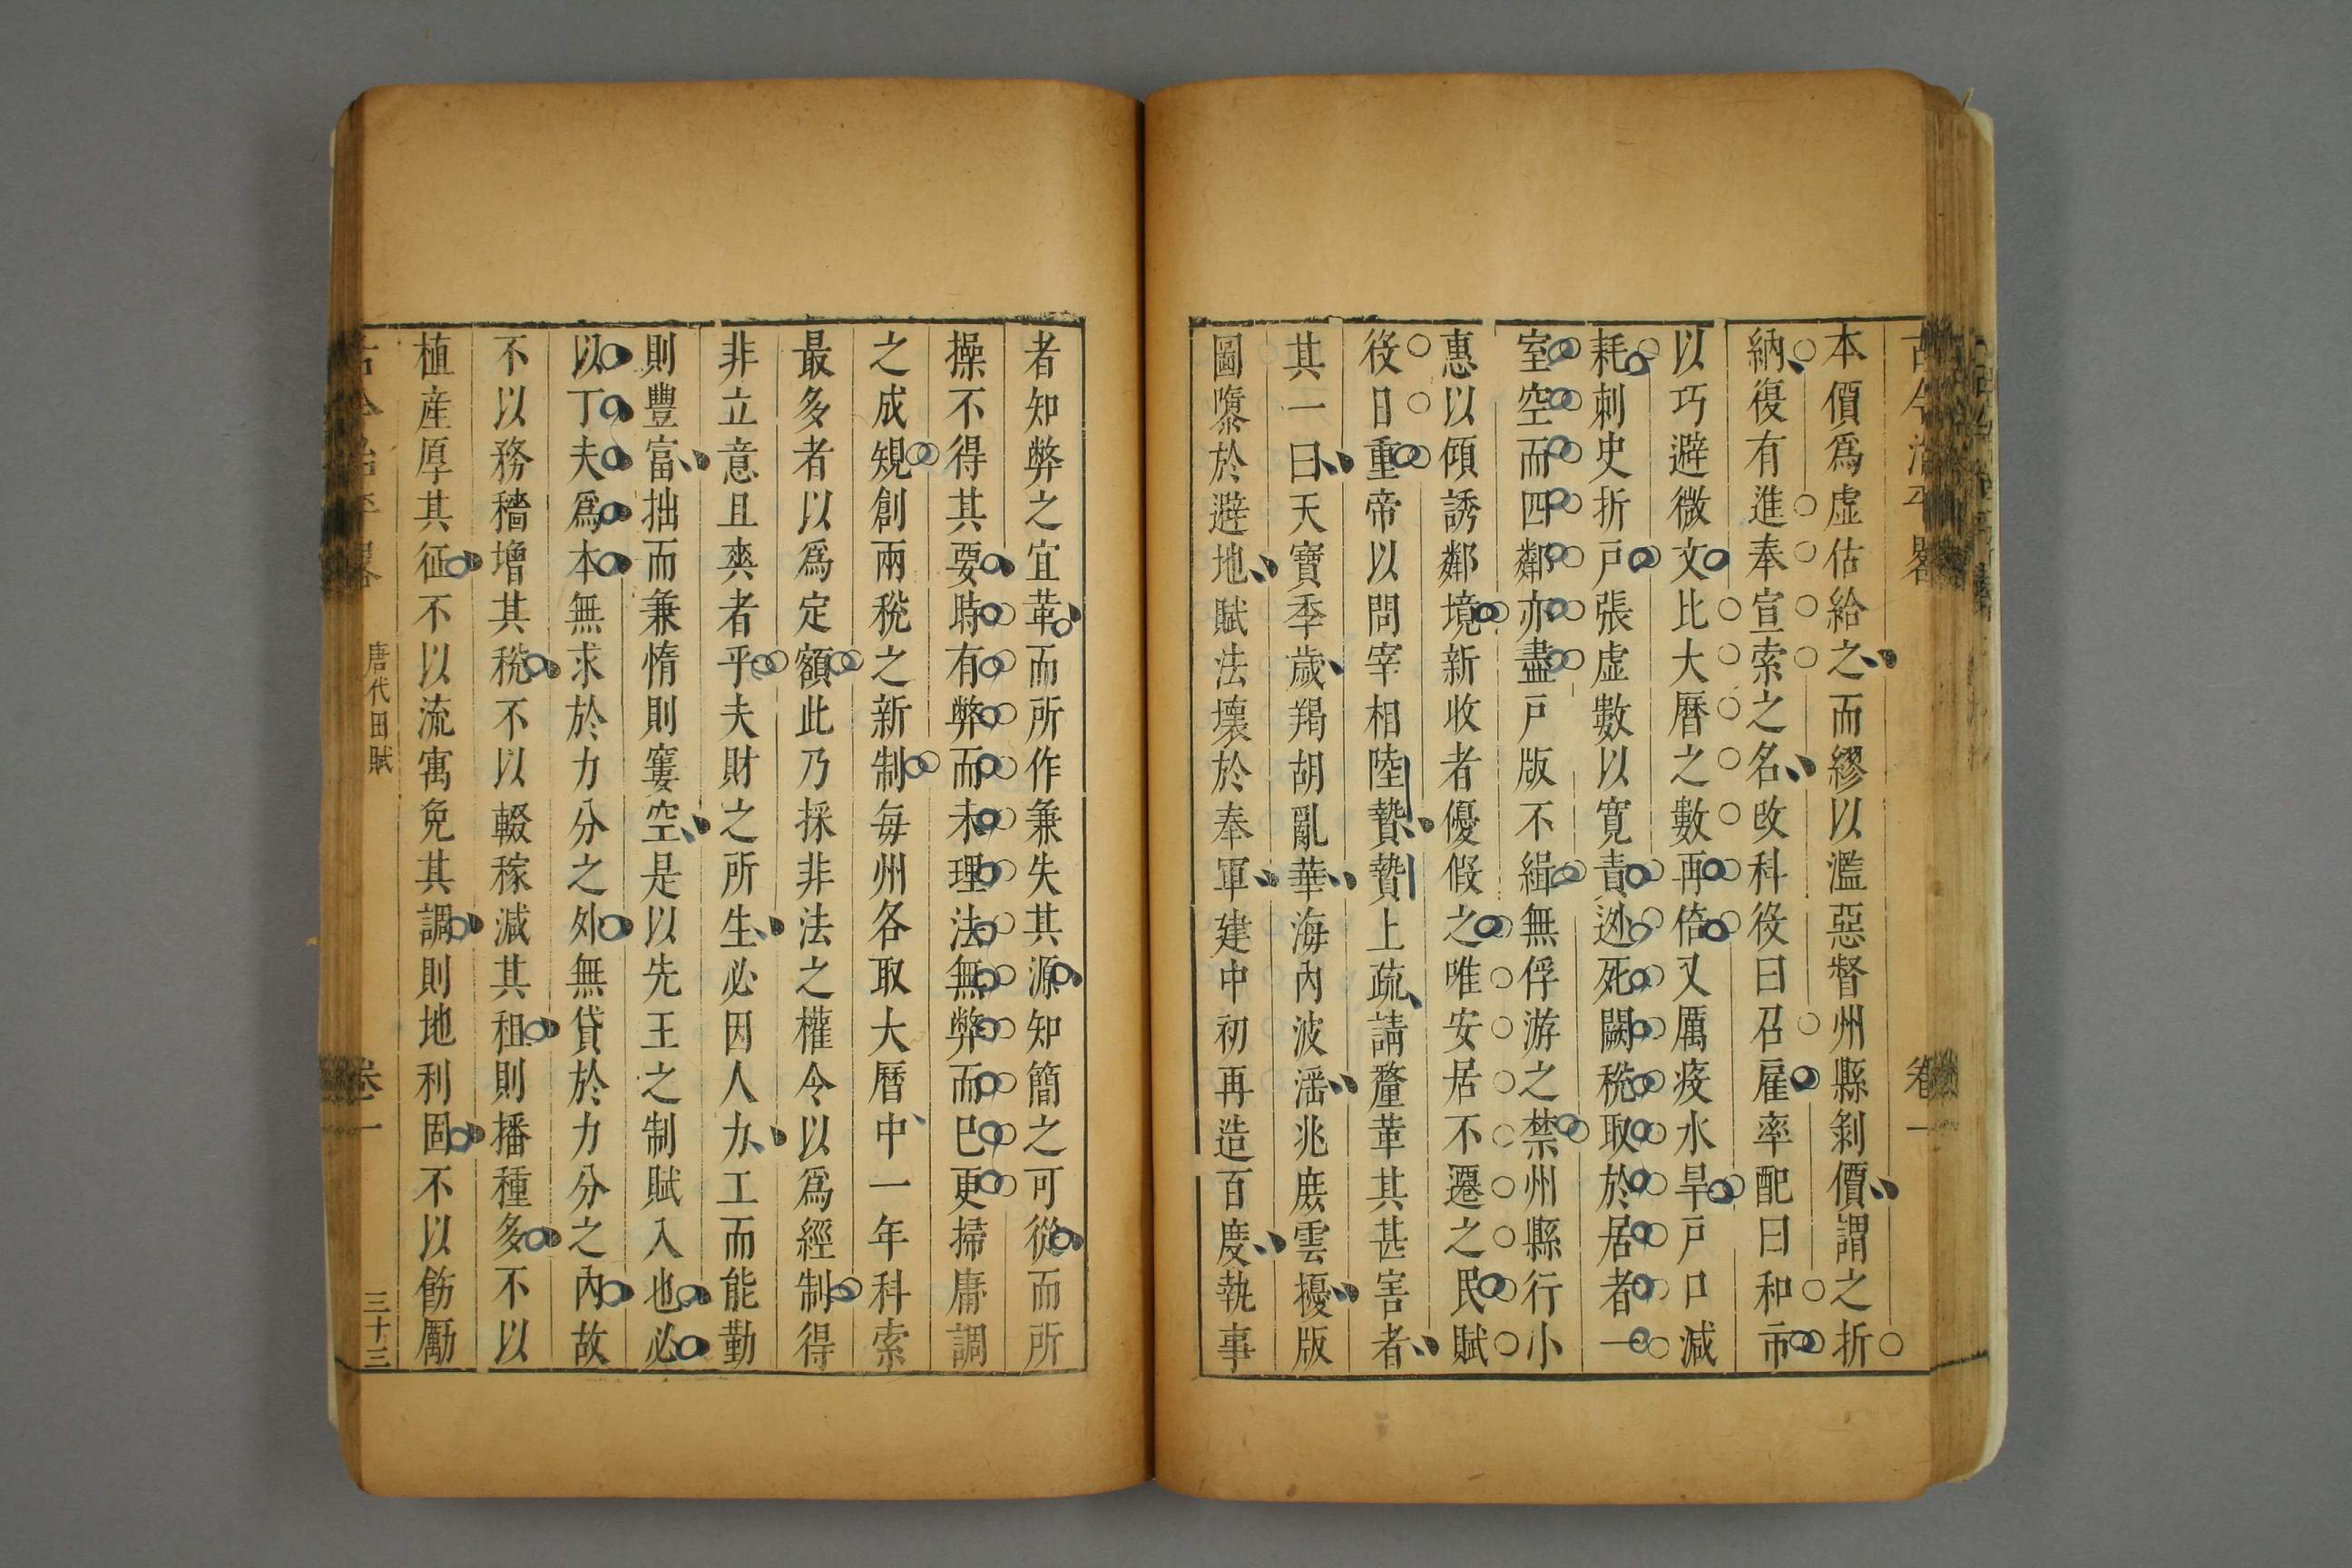 古今治平畧 卷一
本價爲虛估給之而繆以濫惡督州縣剝價謂之折
納復有進奉宣索之名改科役曰召雇率配曰和市
以巧避微文比大曆之數再倍又厲疫水旱戸口減
耗刺史折戸張虛數以寬責迯死闕稅取於居者一
室空而四鄰亦盡戸版不緝無俘游之禁州縣行小
惠以傾誘鄰境新收者優假之唯安居不遷之民賦
役日重帝以問宰相陸贄贄上疏請釐革其甚害者
其一曰天寶季歲羯胡亂華海內波滛兆庶雲擾版
圖隳於避地賦法壞於奉軍建中初再造百度執事
者知弊之宜革而所作兼失其源知簡之可從而所
操不得其要時有弊而未理法無弊而已更掃庸調
之成規創兩稅之新制每州各取大曆中一年科索
最多者以爲定額此乃採非法之權令以爲經制得
非立意且爽者乎夫財之所生必因人力工而能勤
則豐富拙而兼惰則窶空是以先王之制賦入也必
以丁夫爲本無求於力分之外無貸於力分之內故
不以務穡增其稅不以輟稼減其租則播種多不以
植産厚其征不以流寓免其調則地利固不以飭勵
古今治平畧 唐代田賦 卷一 三十三